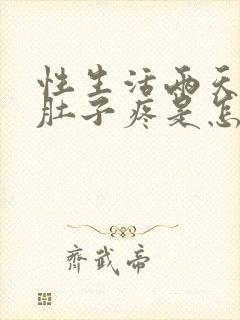 性生活两天
肚子疼是怎
齊武帝